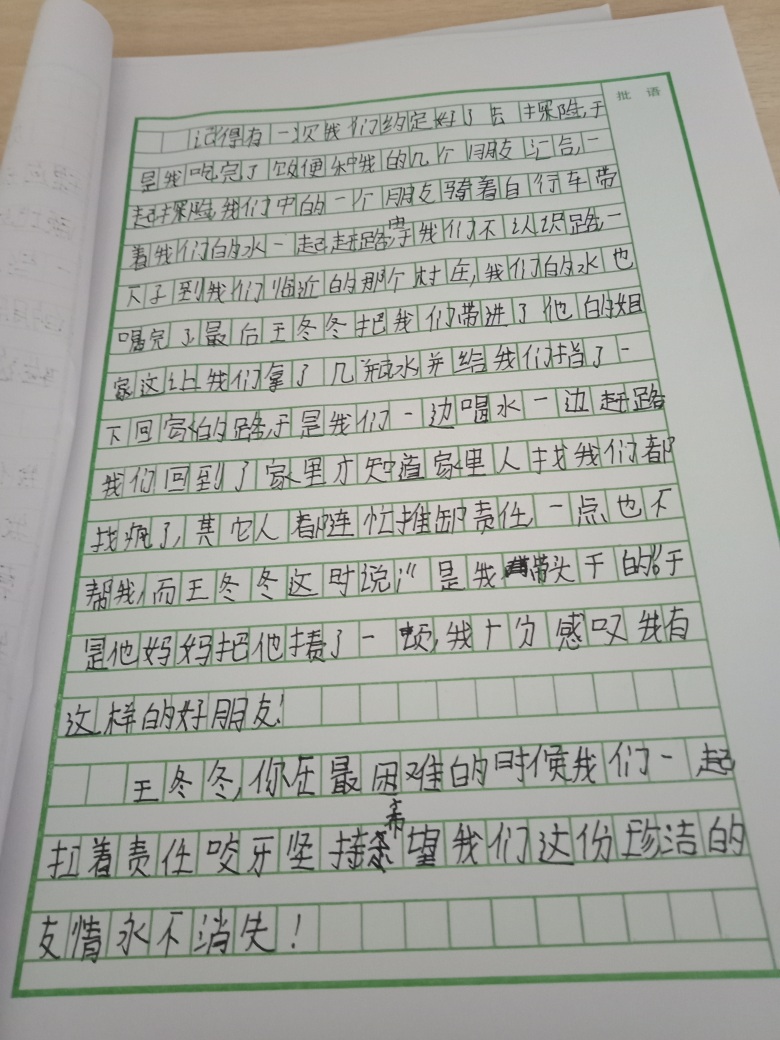 批语
记得有一次我们约定好了去探险,于
是我吃完了饭便和我的几个朋友汇合,一
起探险,我们中的一个朋友骑着自行车带
着我们的水一起赶路,由于我们不认识路一
下子到我们临近的那个村庄,我们的水也
喝完了最后王冬冬把我们带进了他的姐
家这让我们拿了几瓶水并给我们指了一
下回家的路,于是我们一边喝水一边赶路
我们回到了家里才知道家里人找我们都
找疯了,其它人都连忙推卸责任,一点也不
帮我,而王冬冬这时说:"是我带头干的"于
是他妈妈把他揍了一顿,我十分感叹我有
这样的好朋友!
王冬冬,你在最困难的时候我们一起
扛着责任咬牙坚持希望我们这份珍洁的
友情永不消失!